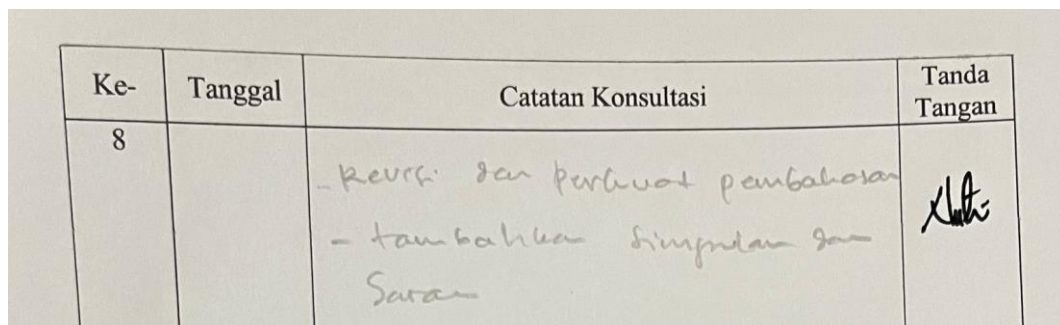 Ke- Tanggal Catatan Konsultasi Tanda Tangan
8
- Revisi dan perkuat pembahasan
- tambahkan simpulan dan
Saran